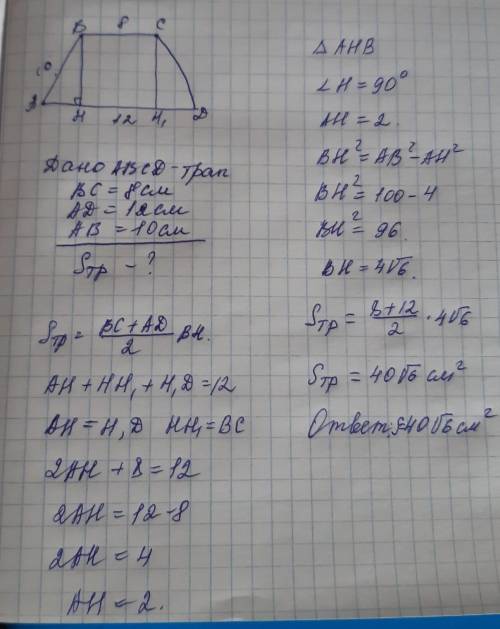 B 8 C
10
A H 12 H₁ D
Дано ABCD-трап
BC = 8см
AD = 12см
AB = 10см
Sтр - ?
Sтр = (BC + AD)/2 BH.
AH + HH₁ + H₁D = 12
AH = H₁D HH₁ = BC
2AH + 8 = 12
2AH = 12 - 8
2AH = 4
AH = 2.
△ AHB
∠H = 90°
AH = 2.
BH² = AB² - AH²
BH² = 100 - 4
BH² = 96.
BH = 4√6.
Sтр = (8 + 12)/2 · 4√6
Sтр = 40√6 см²
Ответ: S=40√6 см²